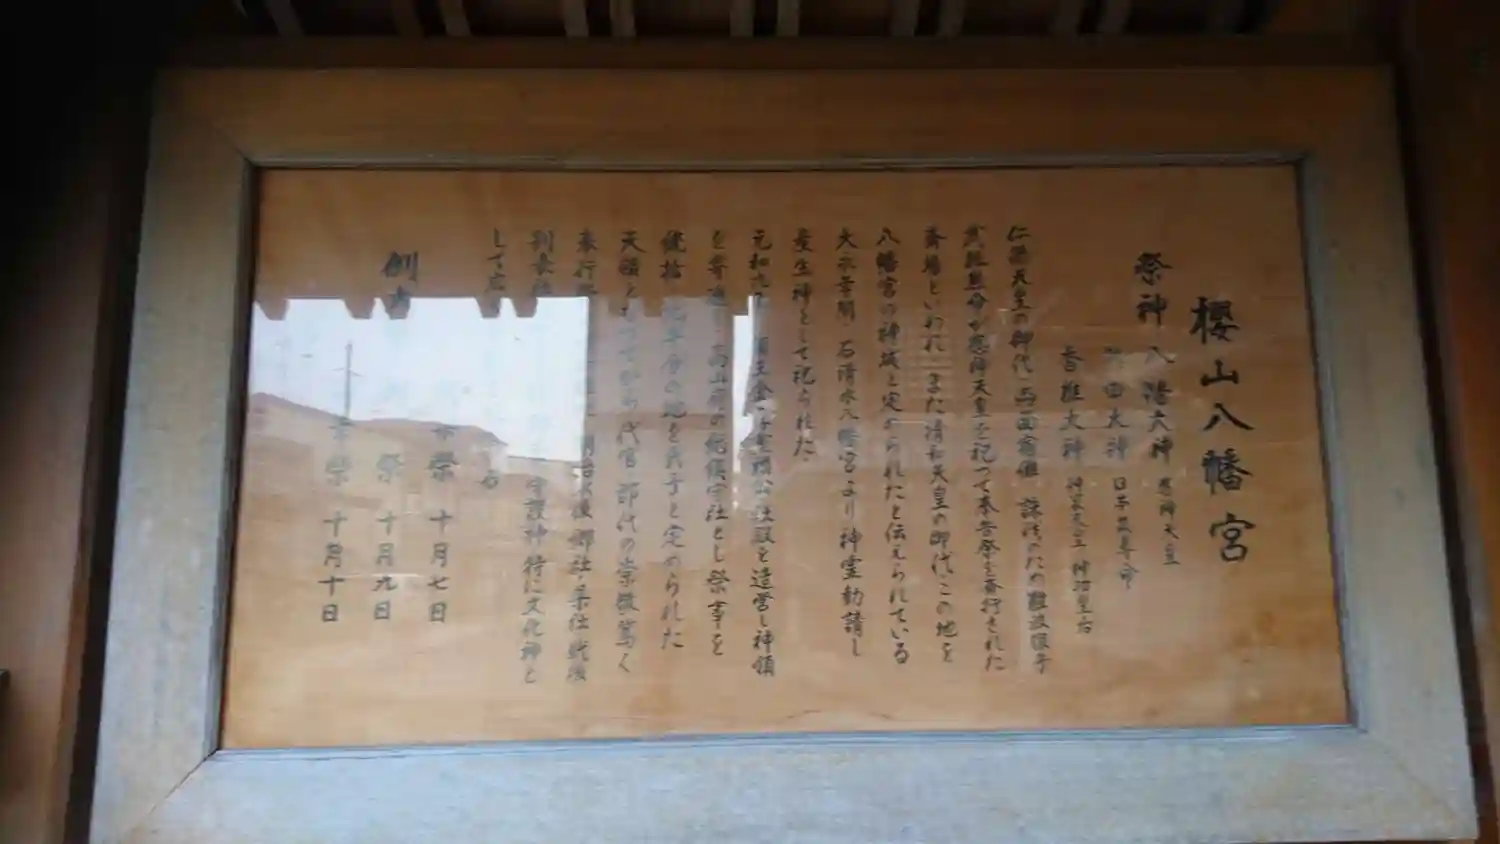 櫻山八幡宮
祭神 八幡大神 應神天皇
田大神 日本武尊命
香椎大神 神功皇后
仁徳天皇の御代 両面宿儺 誅伐のため難波根子
武振熊命が應神天皇を祀って奉告祭を斎行された
斎場といわれ また清和天皇の御代、この地を
八幡宮の神域と定められたと伝えられている
大永年間、石清水八幡宮より神霊勧請し
産生神として祀られた、
元和九 領主金 重頼公 社殿を造営し神領
を寄進 高山府の総鎮守社とし祭事を
統括 の地を氏子と定められた
天領と 代官 郡代の崇敬篤く
奉行 明治以後 郷社・県社 戦後
別表 守護神 特に文化神と
して広
例
祭 十月七日
祭 十月九日
祭 十月十日